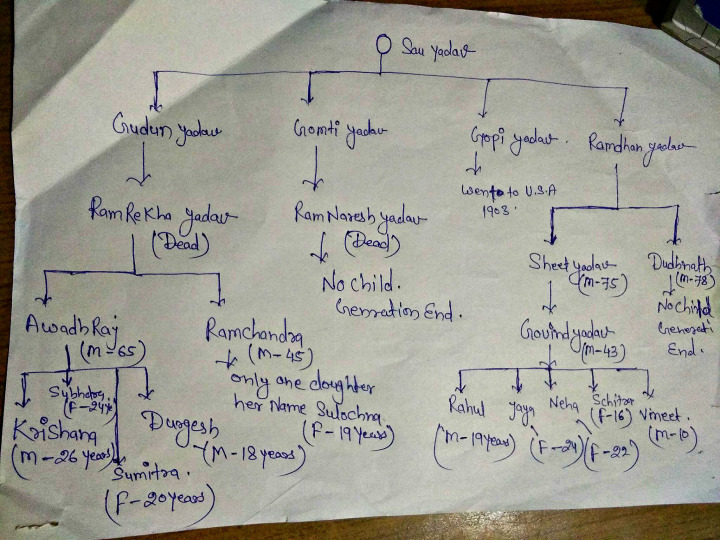 Sau yadav
Gudun yadav
Gomti yadav
Gopi yadav.
Ramdhan yadav
Went to to U.S.A
1903.
RamReKha yadav
(Dead)
RamNaresh yadav
(Dead)
No child.
Genration End.
Sheet yadav
(M-75)
Dudhnath
(M-78)
No Child
Generati
End.
AwadhRaj
(M-65)
Ramchandra
(M-45)
only one doughter
her Name Sulochna.
(F-19 years)
Govind yadav
(M-43)
Subhdra.
KriShana
(M-26 years)
Sumitra.
(F-20 years)
Durgesh
(M-18 years)
Rahul
(M-19 years)
Jaya
(F-24)
Neha
(F-22)
Schitra
(F-16)
Vineet.
(M-10)